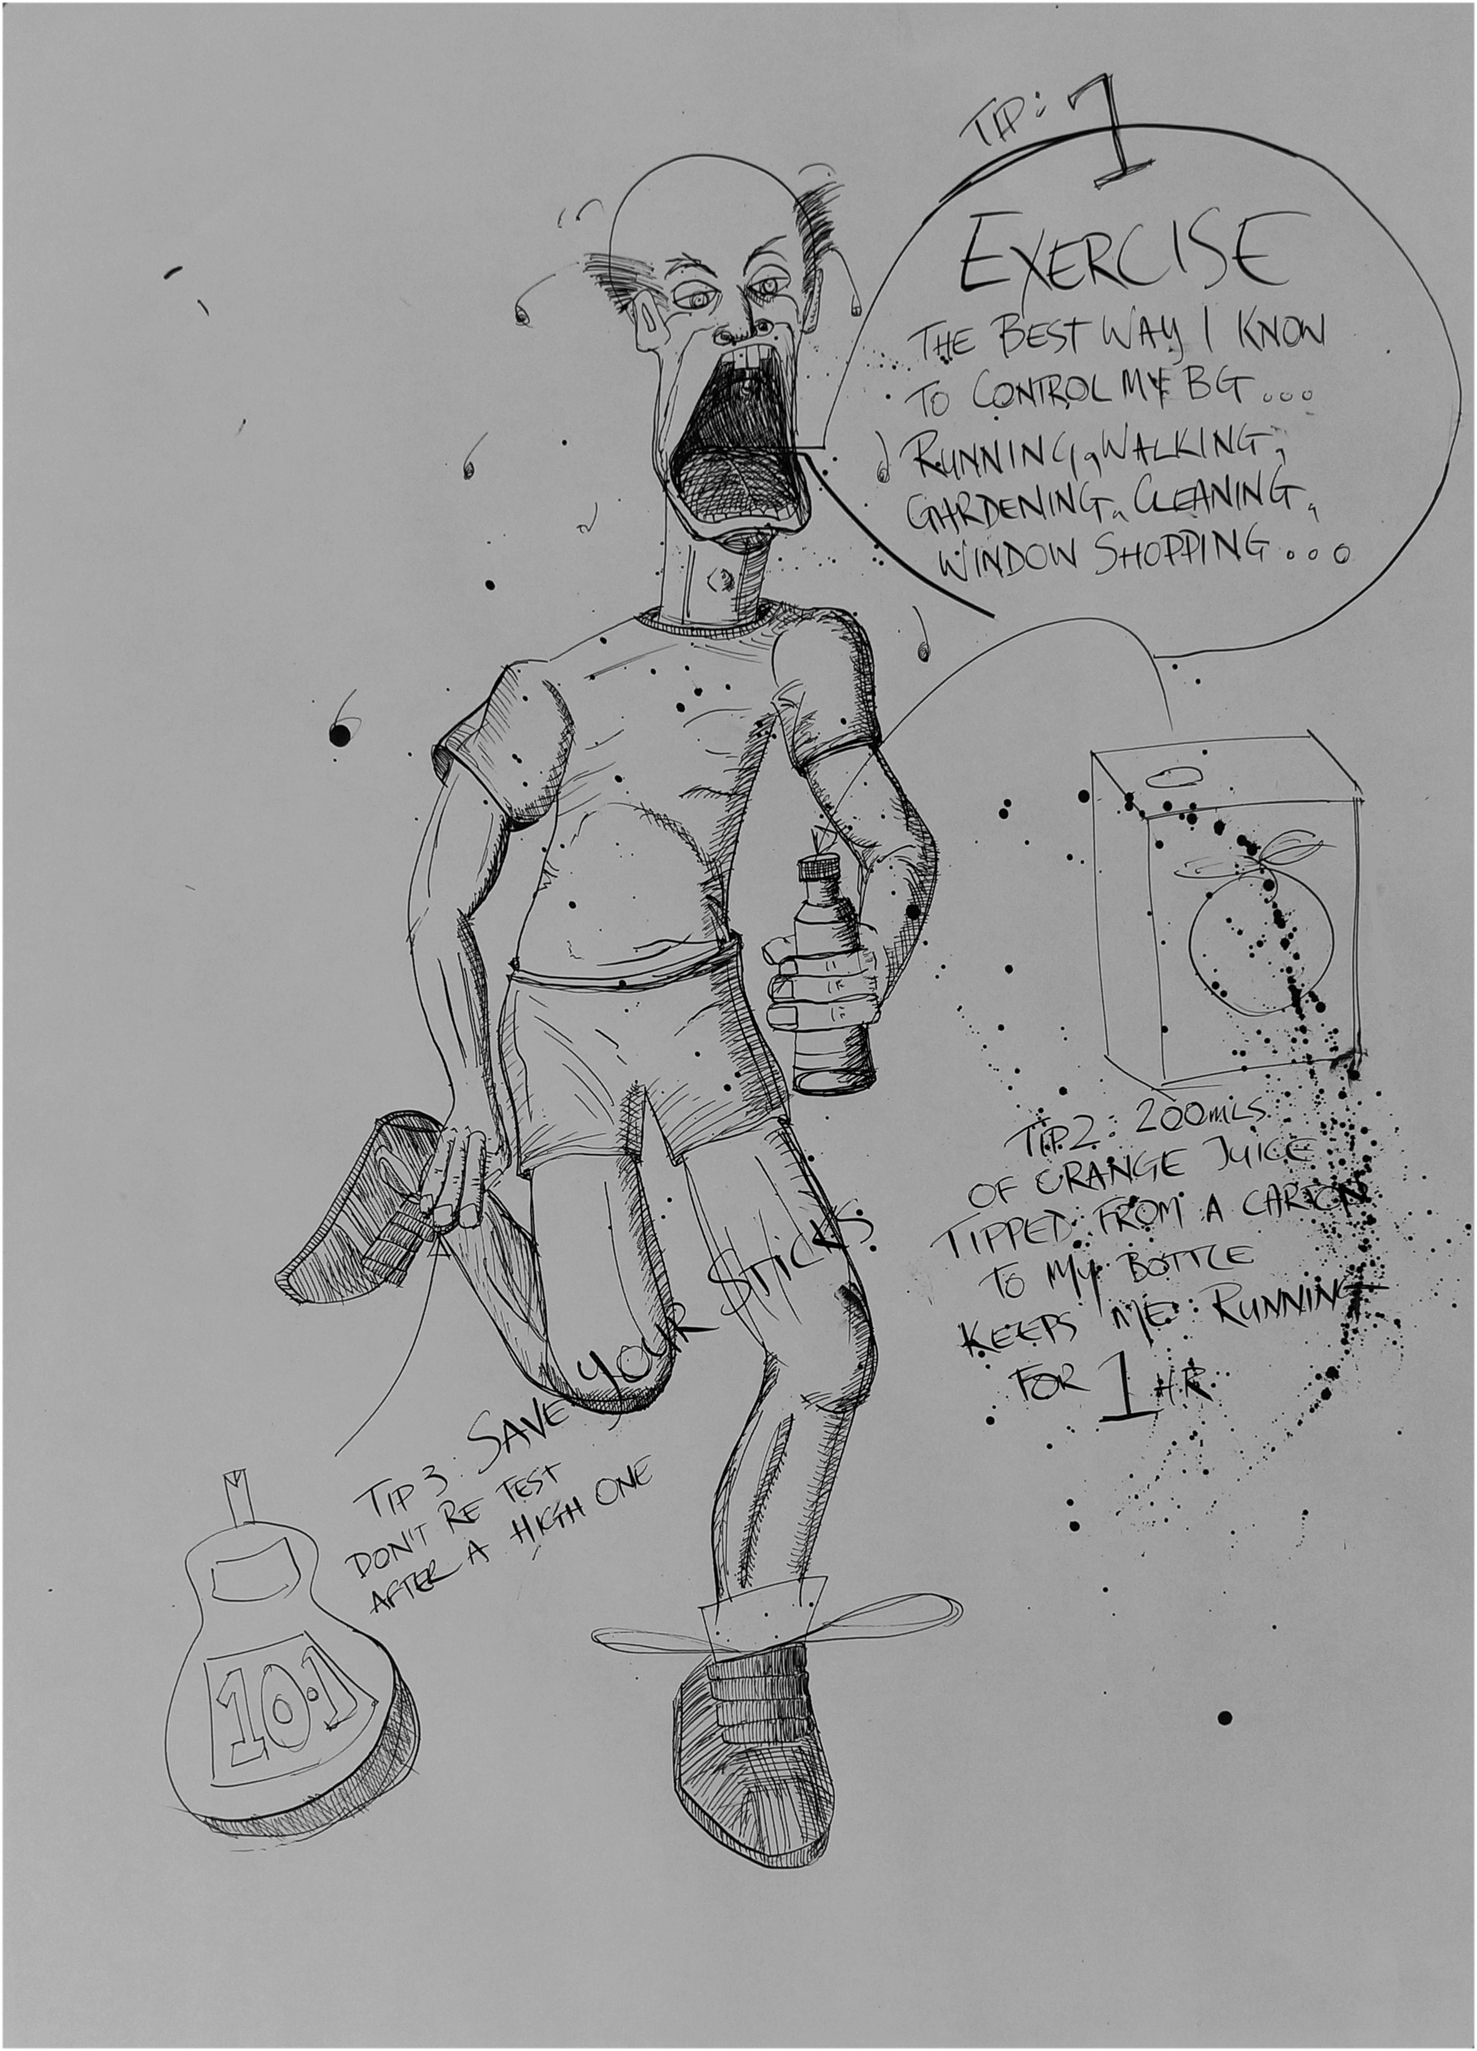 TIP: 1
EXERCISE
THE BEST WAY I KNOW
TO CONTROL MY BG...
RUNNING, WALKING,
GARDENING, CLEANING,
WINDOW SHOPPING...
TIP 2: 200MLS
OF ORANGE JUICE
TIPPED FROM A CARTON
TO MY BOTTLE
KEEPS ME RUNNING
FOR 1 HR
TIP 3. SAVE YOUR STICKS
DON'T RE TEST
AFTER A HIGH ONE
10.1